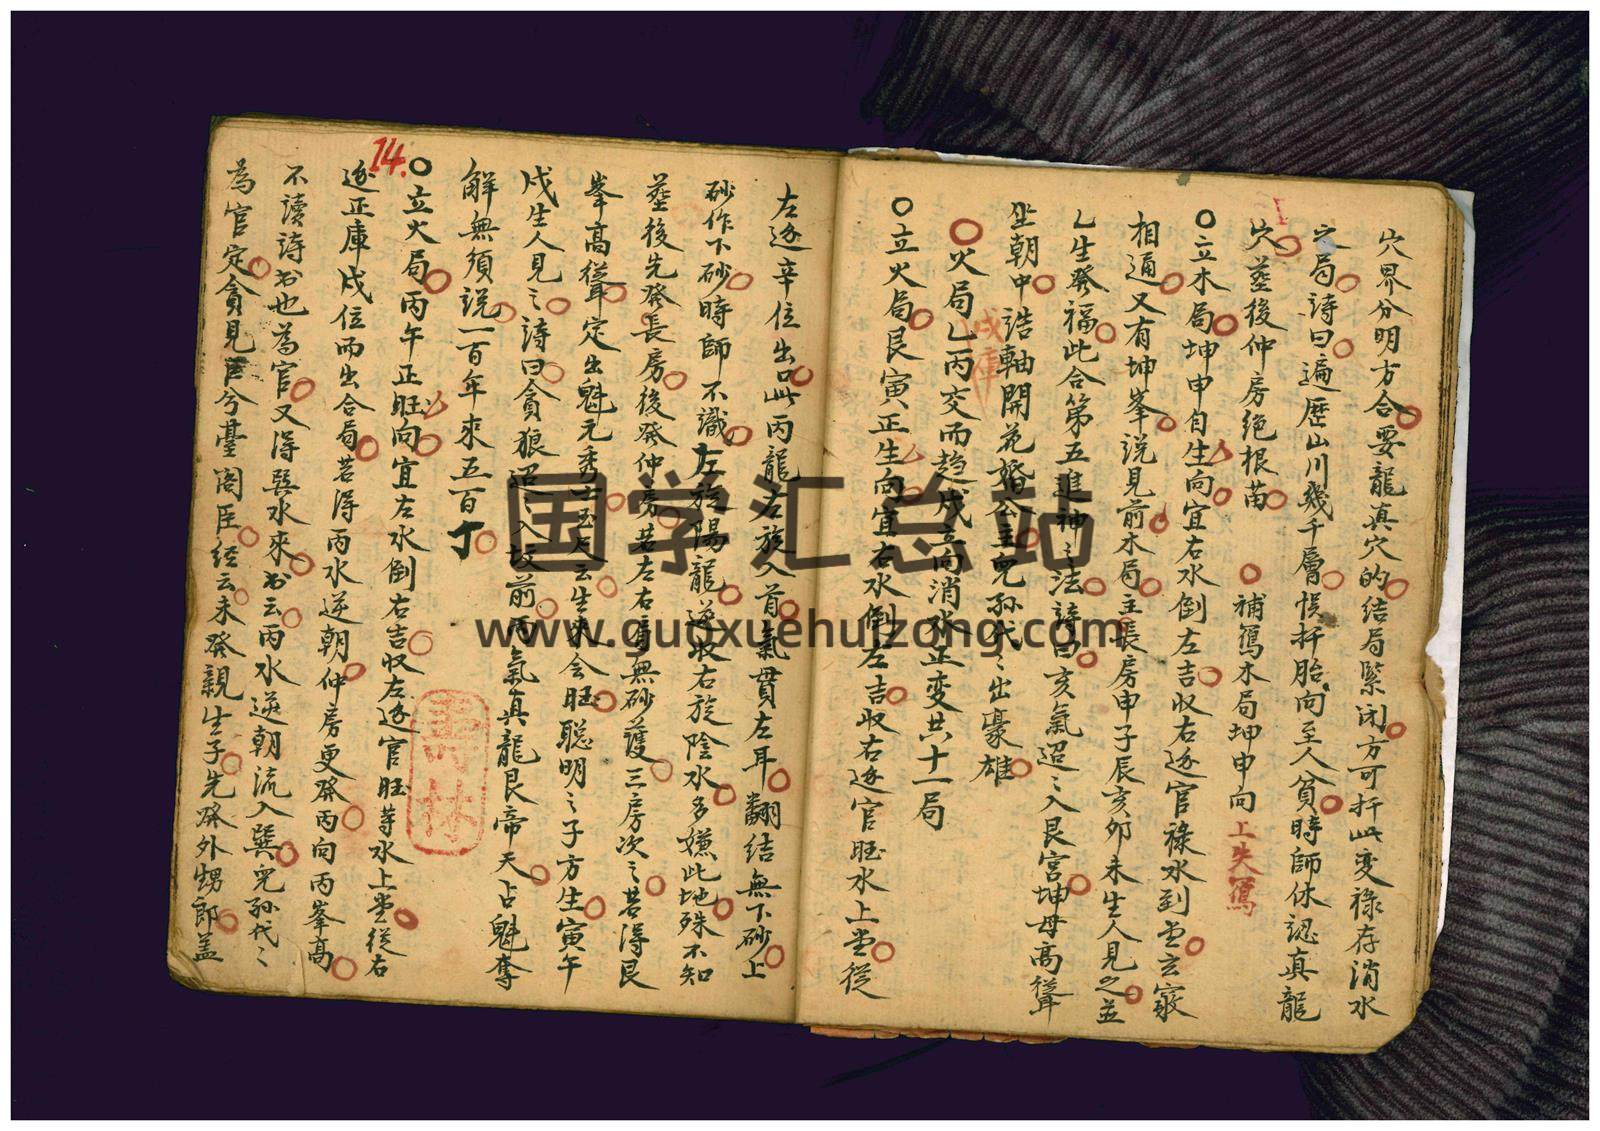 穴界分明方合要龍真穴的結局緊閉方可扦此变祿存消水
之局詩曰遍歷山川幾千層悞扦胎向至人貧時師休認真龍
穴塟後仲房絕根苗 補寫木局坤申向上失寫
立木局坤申自生向宜右水倒左吉收右逐官祿水到堂玄竅
相通又有坤峯說見前木局主長房申子辰亥卯未生人見之並
乙生發福此合第五進神之法詩曰亥氣迢迢入艮宮坤母高聳
坐朝中誥軸開花婚公主児孫代代出豪雄
火局乙丙交而趋戌立向消水正变共十一局
戌庫
立火局艮寅正生向宜右水倒左吉收右逐官旺水上堂從
左逐辛位出此丙龍左旋入首氣貫左耳翻結無下砂上
砂作下砂時師不識左旋陽龍逆收右旋陰水多嫌此地殊不知
塟後先發長房後發仲房若左右高無砂護三房次之若得艮
峯高聳定出魁元秀士玉尺云生來会旺聰明之子方生寅午
戌生人見之詩曰貪狼迢迢入坟前丙氣真龍艮帝天占魁奪
解無須說一百年來五百丁
14.
立火局丙午正旺向宜左水倒右吉收左逐官旺等水上堂從右
逐正庫戌位而出合局若得丙水逆朝仲房更發丙向丙峯高
不讀詩书也為官又得巽水來书云丙水逆朝流入巽児孫代代
為官定貪見官兮臺阁臣经云未發親生子先發外甥郎盖
壽林
国学汇总站
www.guoxuehuizong.com